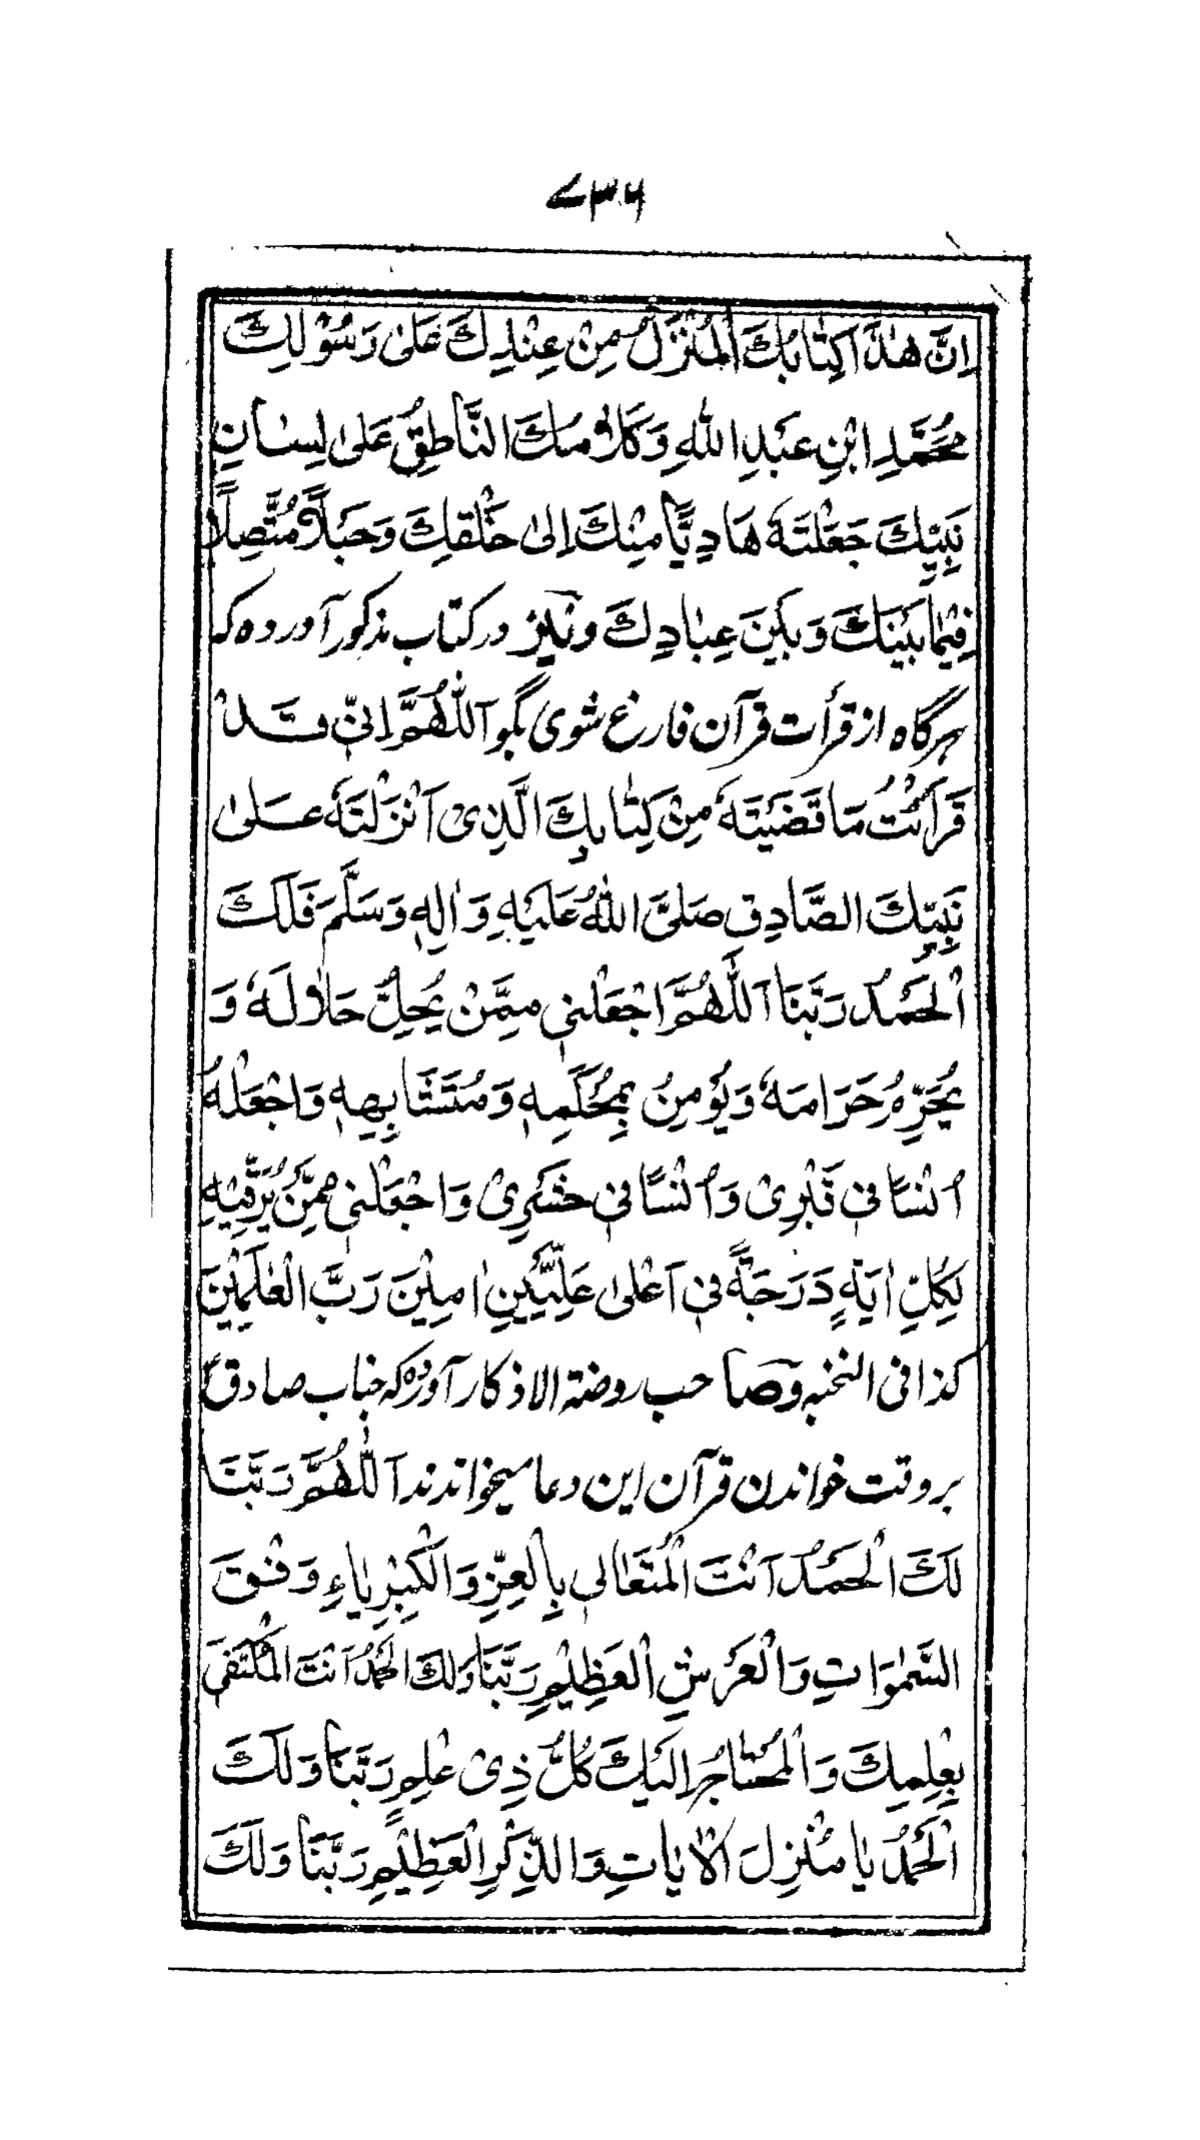 ۷۳۶
اِنَّ هٰذَا كِتَابُكَ الْمُنْزَلُ مِنْ عِنْدِكَ عَلٰى رَسُوْلِكَ
مُحَمَّدِ ابْنِ عَبْدِ اللّٰهِ وَكَلَامُكَ النَّاطِقُ عَلٰى لِسَانِ
نَبِيِّكَ جَعَلْتَهٗ هَادِيًّا مِنْكَ اِلٰى خَلْقِكَ وَحَبْلًا مُتَّصِلًا
فِيْمَا بَيْنَكَ وَبَيْنَ عِبَادِكَ ونیز در کتاب مذکور آورده که
هرگاه از قرأت قرآن فارغ شوی بگو اَللّٰهُمَّ اِنِّيْ قَدْ
قَرَأْتُ مَا قَضَيْتَهٗ مِنْ كِتَابِكَ الَّذِىْ اَنْزَلْتَهٗ عَلٰى
نَبِيِّكَ الصَّادِقِ صَلَّى اللّٰهُ عَلَيْهِ وَاٰلِهٖ وَسَلَّمَ فَلَكَ
الْحَمْدُ رَبَّنَا اَللّٰهُمَّ اجْعَلْنِيْ مِمَّنْ يُحِلُّ حَلَالَهٗ وَ
يُحَرِّمُ حَرَامَهٗ وَيُؤْمِنُ بِمُحْكَمِهٖ وَمُتَشَابِهِهٖ وَاجْعَلْهُ
اُنْسًا فِيْ قَبْرِىْ وَاُنْسًا فِيْ حَشْرِىْ وَاجْعَلْنِيْ مِمَّنْ يُرَقِّيْهِ
لِكُلِّ اٰيَةٍ دَرَجَةً فِيْ اَعْلٰى عَلِيِّيْنَ اٰمِيْنَ رَبَّ الْعٰلَمِيْنَ
کذا فی النخبه وصاحب روضة الاذکار آورده که جناب صادقؑ
بروقت خواندن قرآن این دعا میخواندند اَللّٰهُمَّ رَبَّنَا
لَكَ الْحَمْدُ اَنْتَ الْمُتَعَالِيْ بِالْعِزِّ وَالْكِبْرِيَاءِ وَفَوْقَ
السَّمٰوَاتِ وَالْعَرْشِ الْعَظِيْمِ رَبَّنَا وَلَكَ الْحَمْدُ اَنْتَ الْمُكْتَفِىْ
بِعِلْمِكَ وَالْمُحْتَاجُ اِلَيْكَ كُلُّ ذِىْ عِلْمٍ رَبَّنَا وَلَكَ
الْحَمْدُ يَا مُنْزِلَ الْاٰيَاتِ وَالذِّكْرِ الْعَظِيْمِ رَبَّنَا وَلَكَ